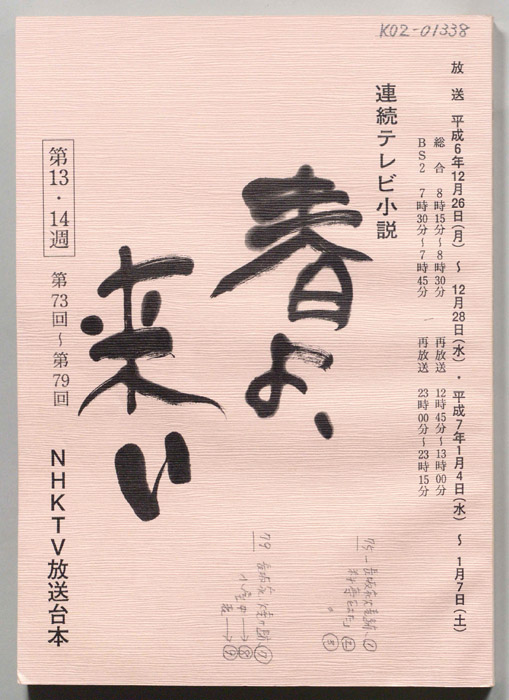 K02-01338
放送 平成6年12月26日(月) ～ 12月28日(水)・平成7年1月4日(水) ～ 1月7日(土)
総合 8時15分～8時30分 再放送 12時45分～13時00分
BS2 7時30分～7時45分 再放送 23時00分～23時15分
連続テレビ小説
春よ、
来い
第13・14週 第73回～第79回
NHKTV放送台本